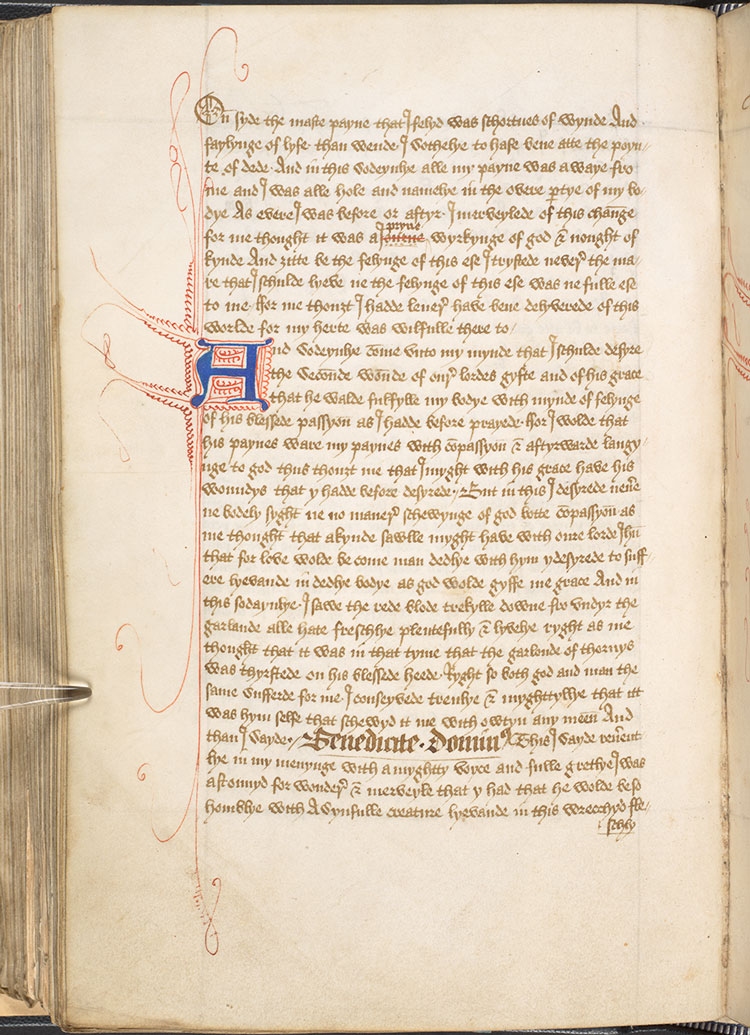 On syde the maste payne that I felyd was schortnes of wynde And
faylynge of lyfe. than wende. I sothelye to hafe bene atte the poyn/
te of dede. And in this sodeynlye alle my payne was a waye fro
me and I was alle hole and namelye in the overe ptye of my bo/
dye As evere I was before or aftyr. I merveylede of this change
for me thought it was a pryue wyrkynge of god & nought of
kynde And zitte be the felynge of this ese I trystede never the ma/
re that I schulde lyeve ne the felynge of this ese was ne fulle ese
to me. ffor me thouzt I hadde lever have bene delyverede of this
worlde for my herte was wilfulle there to/
And sodeynlye come unto my mynde that I schulde desyre
the seconde wonde of our lordes gyfte and of his grace
that he walde fulfylle my bodye with mynde of felynge
of his blessede passyon as I hadde before prayede. ffor I wolde that
his paynes ware my paynes with cōpassyon & aftyrwarde langy/
nge to god thus thouzt me that I myght with his grace have his
wonndys that y hadde before desyrede. / But in this I desyrede neuere
ne bodely syght ne no maner schewynge of god botte cōpassyon as
me thought that a kynde sawlle myght have with oure lorde Ihū
that for love wolde be come man dedlye with hym y desyrede to suff/
ere lyevande in dedlye bodye as god wolde gyffe me grace And in
this sodaynlye. I sawe the rede blode trekylle downe fro undyr the
garlande alle hate freschlye plentefully & lyvelye ryght as me
thought that it was in that tyme that the garlonde of thornys
was thyrstede on his blessede heede. Ryght so both god and man the
same sufferde for me. I conseyvede treulye & myghttyllye that itt
was hym selfe that schewyd it me with owtyn any meen And
than I sayde. / Benedicite . Domin⁹ This I sayde reuerent
lye in my menynge with a myghtty voyce and fulle gretlye I was
astonnyd for wonder & merveyle that y had that he wolde be so
homblye with A synfulle creature lyevande in this wrecchyd fle/
schly